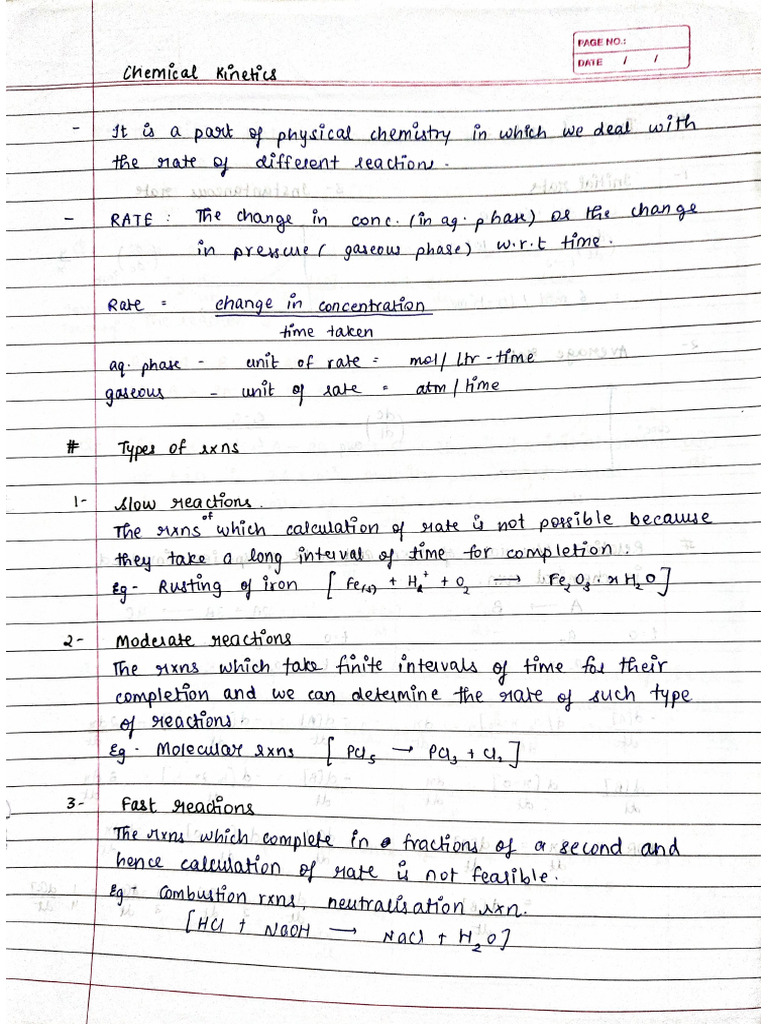 PAGE NO.:
DATE / /
Chemical Kinetics
- It is a part of physical chemistry in which we deal with
the rate of different reactions.
- RATE : The change in conc. (in aq. phase) or the change
in pressure ( gaseous phase) w.r.t time.
Rate = change in concentration
time taken
aq. phase - unit of rate = mol/ Ltr - time
gaseous - unit of rate = atm / time
# Types of rxns
1- Slow reactions.
The rxns of which calculation of rate is not possible because
they take a long interval of time for completion.
Eg - Rusting of iron [ Fe(s) + H⁺ + O₂ → Fe₂O₃ · xH₂O ]
2- Moderate reactions
The rxns which take finite intervals of time for their
completion and we can determine the rate of such type
of reactions
Eg - Molecular rxns [ PCl₅ → PCl₃ + Cl₂ ]
3- Fast reactions
The rxns which complete in fractions of a second and
hence calculation of rate is not feasible.
Eg - Combustion rxns, neutralisation rxn.
[HCl + NaOH → NaCl + H₂O]